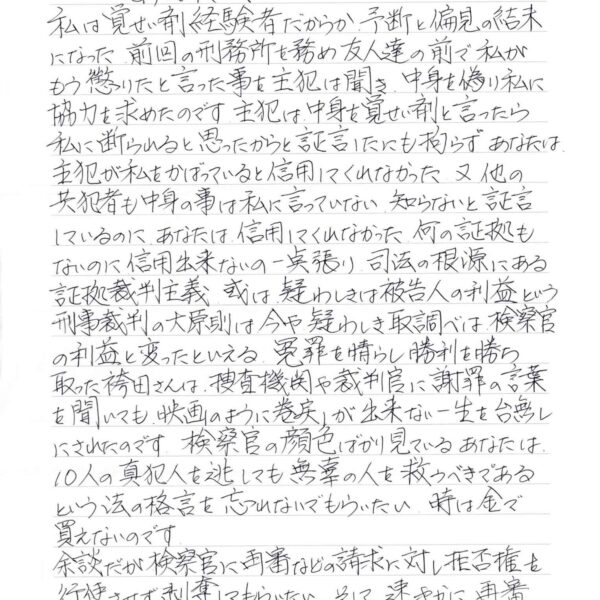 私は覚せい剤経験者だからか 予断と偏見の結末
になった 前回の刑務所を務め友人達の前で私が
もう懲りたと言った事を主犯は聞き、中身を偽り私に
協力を求めたのです 主犯は、中身を覚せい剤と言ったら
私に断られると思ったからと証言したにも拘らず あなたは、
主犯が私をかばっていると信用してくれなかった 又 他の
共犯者も中身の事は私に言っていない 知らないと証言
しているのに あなたは 信用してくれなかった 何の証拠も
ないのに 信用出来ないの一点張り 司法の根源にある
証拠裁判主義 或は 疑わしきは被告人の利益という
刑事裁判の大原則は今や疑わしき取調べは、検察官
の利益と変ったといえる 冤罪を晴らし勝利を勝ち
取った袴田さんは、捜査機関や裁判官に謝罪の言葉
を聞いても、映画のように巻戻しが出来ない一生を台無し
にされたのです 検察官の顔色ばかり見ているあなたは、
10人の真犯人を逃しても無辜の人を救うべきである
という法の格言を忘れないでもらいたい 時は金で
買えないのです
余談だが検察官に再審などの請求に対し拒否権を
行使させず剥奪してもらいたい そして 速やかに 再審